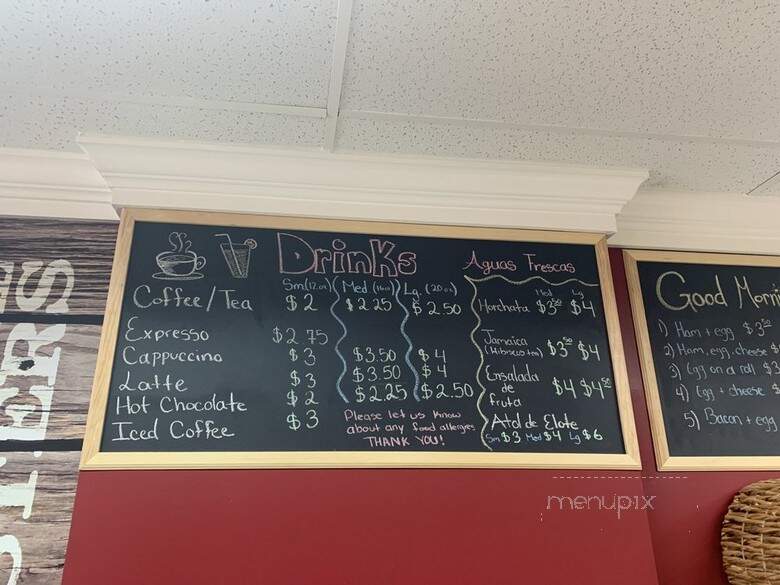 Drinks
Sm (12 oz) Med (16oz) Lg. (20oz)
Coffee/Tea $2 $2.25 $2.50
Expresso $2.75
Cappuccino $3 $3.50 $4
Latte $3 $3.50 $4
Hot Chocolate $2 $2.25 $2.50
Iced Coffee $3
Please let us know
about any food allergies
THANK YOU!
Aguas Frescas
Med Lg
Horchata $3.50 $4
Jamaica
(Hibiscus tea) $3.50 $4
Ensalada
de
fruta $4 $4.50
Atol de Elote
Sm $3 Med $4 Lg $6
Good Morni
1) Ham + egg $3.50
2) Ham, egg, cheese $
3) Egg on a roll $3
4) Egg + cheese
5) Bacon + egg
menupix